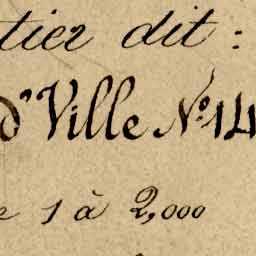 tier dit :
d'Ville No. 14
e 1 à 2,000